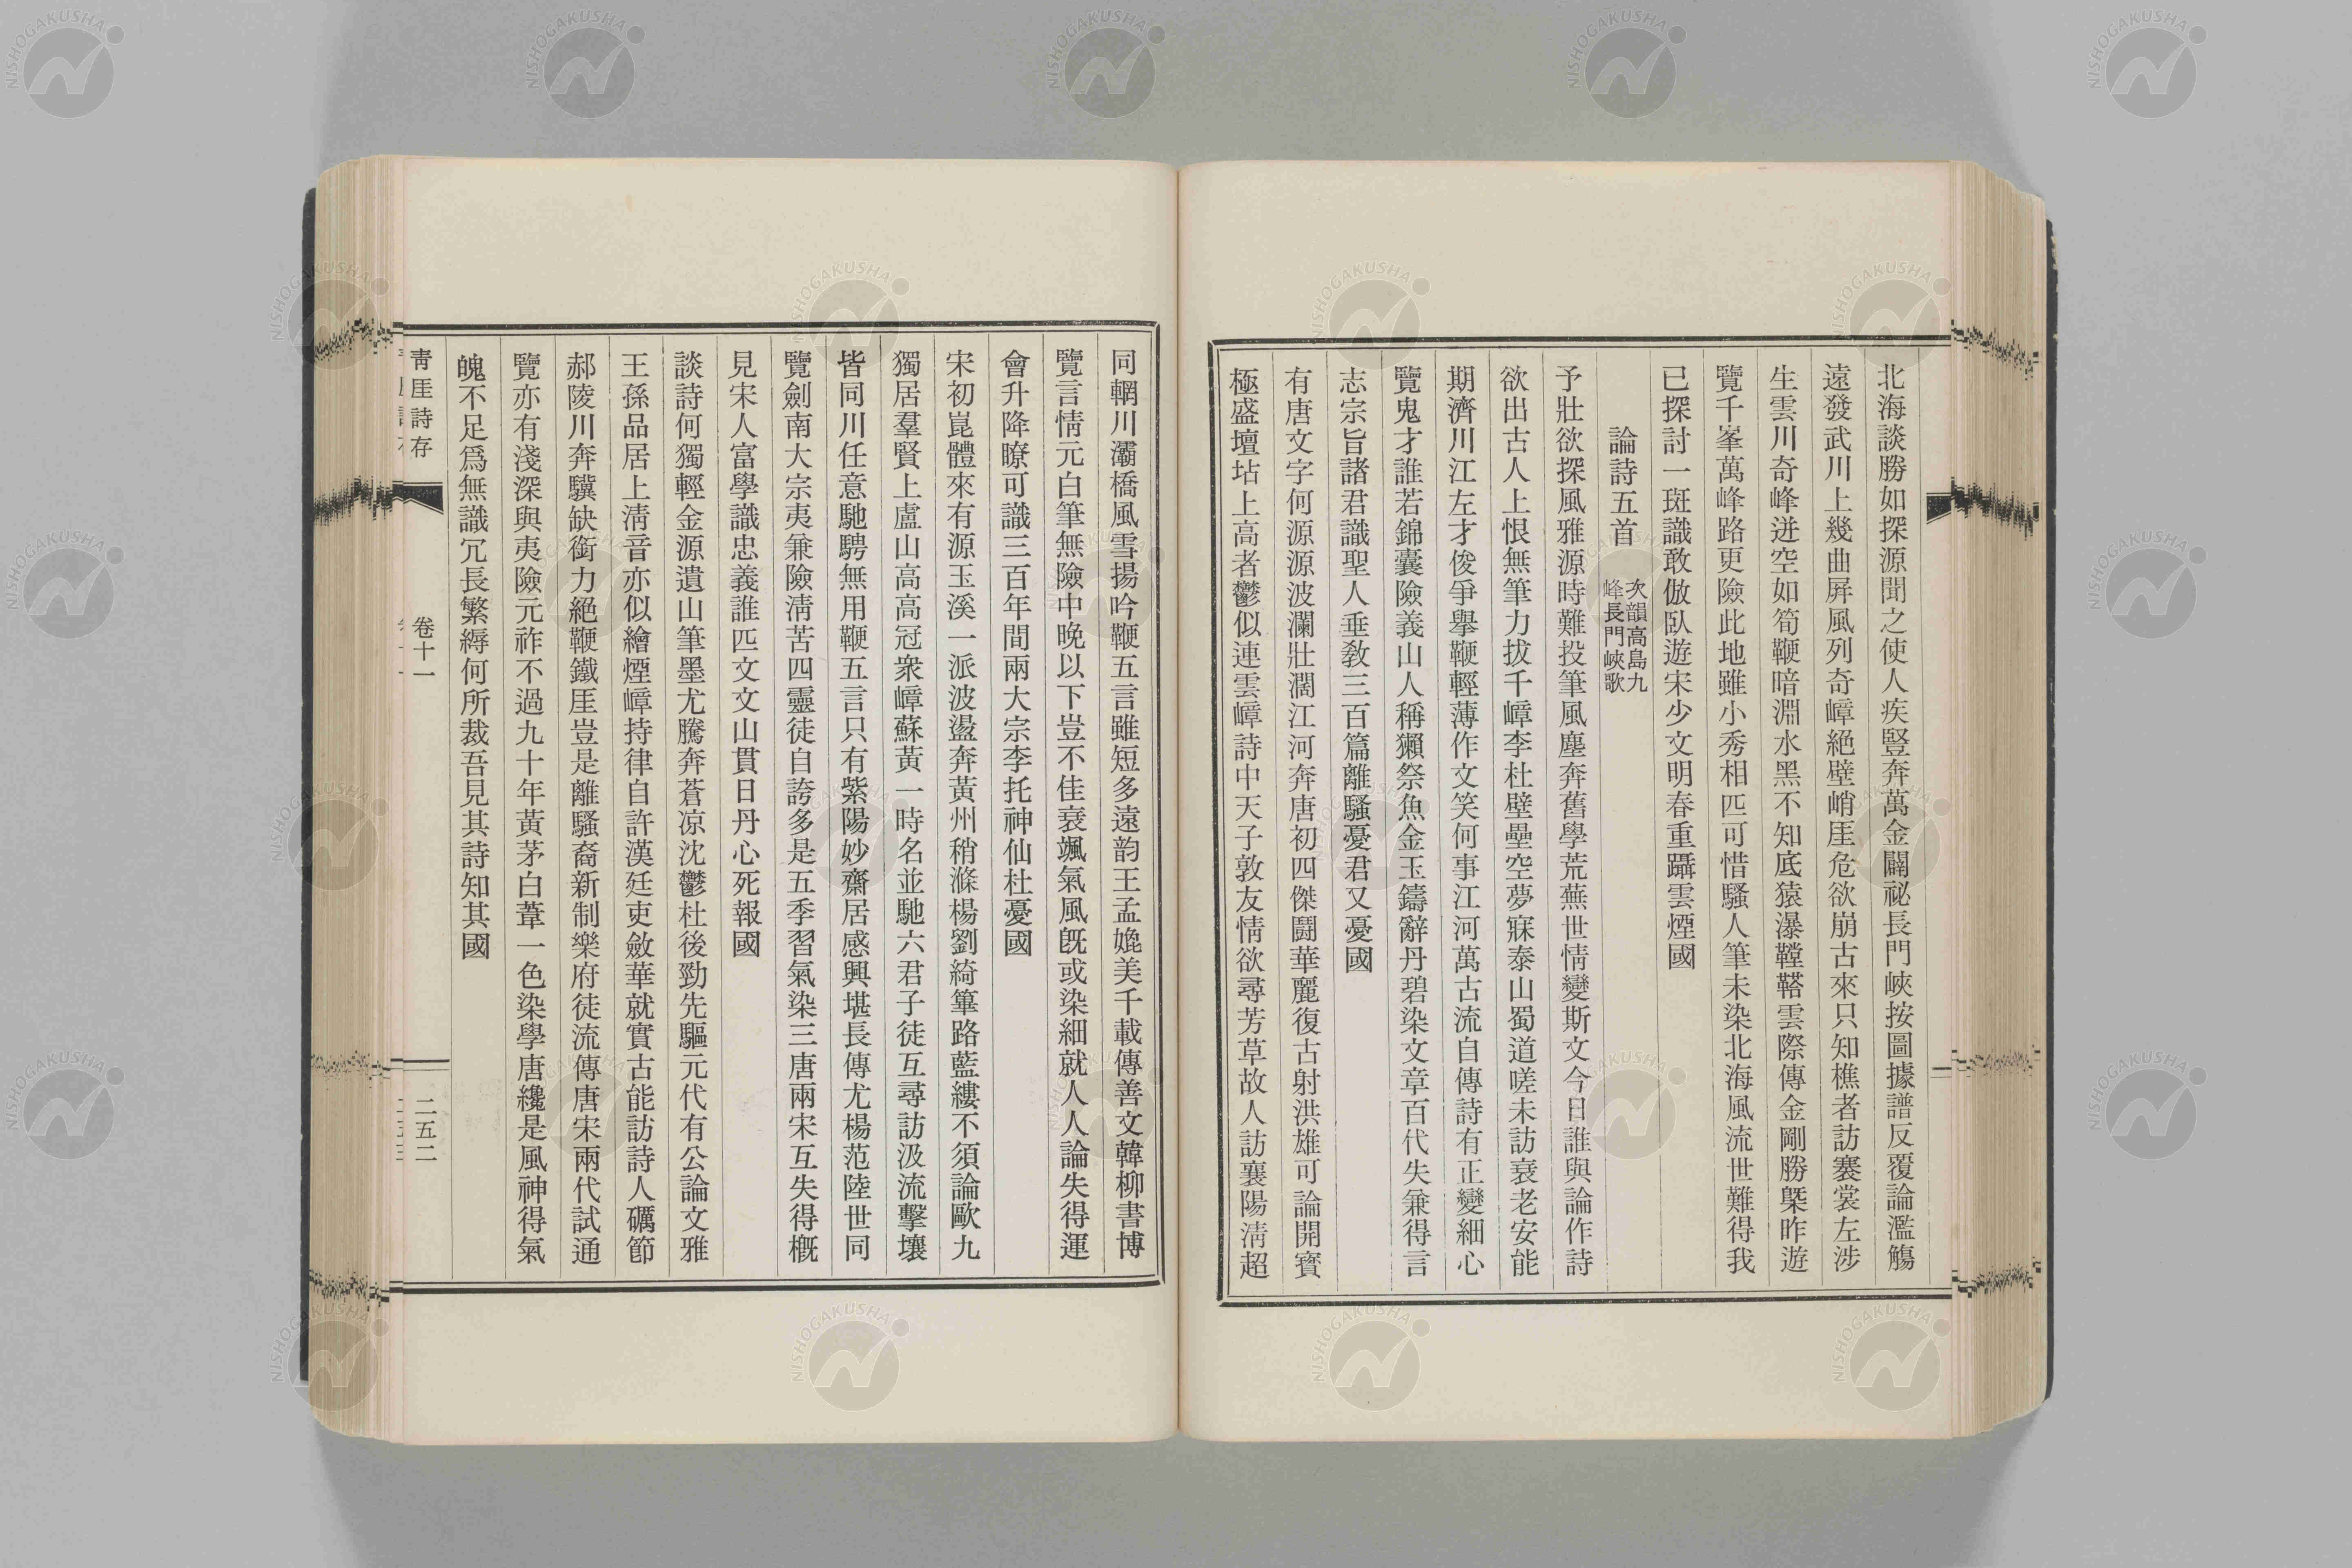 北海談勝如探源聞之使人疾豎奔萬金闢祕長門峽按圖據譜反覆論濫觴
遠發武川上幾曲屏風列奇嶂絕壁峭厓危欲崩古來只知樵者訪褰裳左涉
生雲川奇峰迸空如筍鞭暗淵水黑不知底猿瀑鞺鞳雲際傳金剛勝槩昨遊
覽千峯萬峰路更險此地雖小秀相匹可惜騷人筆未染北海風流世難得我
已探討一斑識敢倣臥遊宋少文明春重躡雲煙國
論詩五首 次韻高島九
峰長門峽歌
予壯欲探風雅源時難投筆風塵奔舊學荒蕪世情變斯文今日誰與論作詩
欲出古人上恨無筆力拔千嶂李杜壁壘空夢寐泰山蜀道嗟未訪衰老安能
期濟川江左才俊爭擧鞭輕薄作文笑何事江河萬古流自傳詩有正變細心
覽鬼才誰若錦囊險義山人稱獺祭魚金玉鑄辭丹碧染文章百代失兼得言
志宗旨諸君識聖人垂敎三百篇離騷憂君又憂國
有唐文字何源源波瀾壯濶江河奔唐初四傑鬪華麗復古射洪雄可論開寶
極盛壇坫上高者鬱似連雲嶂詩中天子敦友情欲尋芳草故人訪襄陽淸超
同輞川灞橋風雪揚吟鞭五言雖短多遠韵王孟媲美千載傳善文韓柳書博
覽言情元白筆無險中晚以下豈不佳衰颯氣風旣或染細就人人論失得運
會升降瞭可識三百年間兩大宗李托神仙杜憂國
宋初崑體來有源玉溪一派波盪奔黃州稍滌楊劉綺篳路藍縷不須論歐九
獨居羣賢上盧山高高冠衆嶂蘇黃一時名並馳六君子徒互尋訪汲流擊壤
皆同川任意馳騁無用鞭五言只有紫陽妙齋居感興堪長傳尤楊范陸世同
覽劍南大宗夷兼險淸苦四靈徒自誇多是五季習氣染三唐兩宋互失得槪
見宋人富學識忠義誰匹文文山貫日丹心死報國
談詩何獨輕金源遺山筆墨尤騰奔蒼凉沈鬱杜後勁先驅元代有公論文雅
王孫品居上淸音亦似繪煙嶂持律自許漢廷吏斂華就實古能訪詩人礪節
郝陵川奔驥缺銜力絕鞭鐵厓豈是離騷裔新制樂府徒流傳唐宋兩代試通
覽亦有淺深與夷險元祚不過九十年黃茅白葦一色染學唐纔是風神得氣
魄不足爲無識冗長繁縟何所裁吾見其詩知其國
靑厓詩存 卷十一 二五二